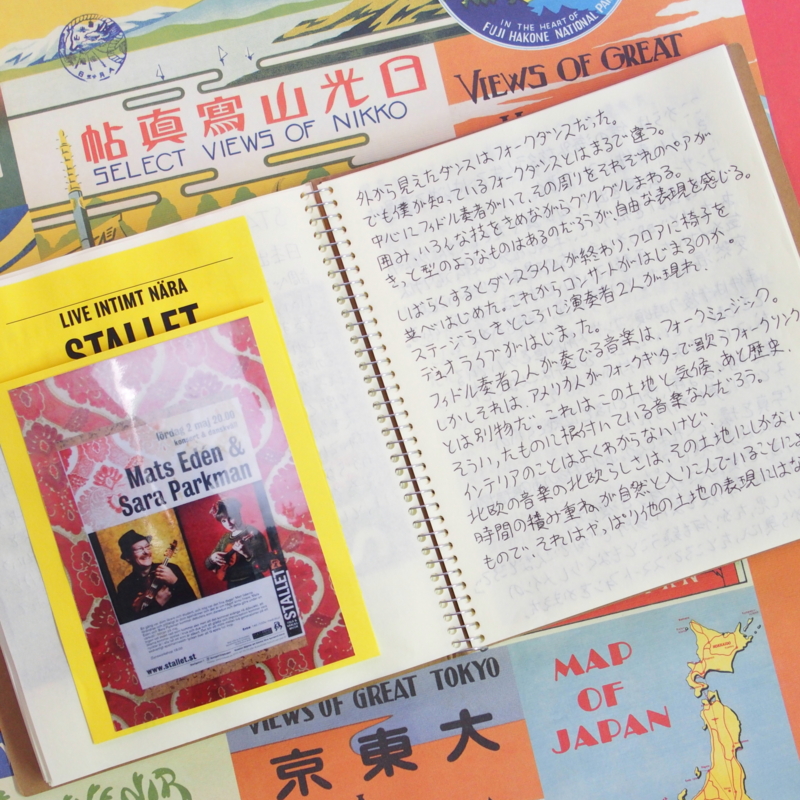 B*RA
IN THE HEART OF
FUJI HAKONE NATIONAL PA
帖真寫山光日
SELECT VIEWS OF NIKKO
VIEWS OF GREAT
LIVE INTIMT NÄRA
STALLET
lördag 2 maj 20.00
konsert & danskväll
Mats Edén &
Sara Parkman
STALLET
www.stallet.st
外から見えたダンスはフォークダンスだった。
でも僕が知っているフォークダンスとはまるで違う。
中心にフィドル奏者がいて、その周りをそれぞれのペアが
囲み、いろんな技をきめながらグルグルまわる。
きっと型のようなものはあるのだろうが、自由な表現を感じる。
しばらくするとダンスタイムが終わり、フロアに椅子を
並べはじめた。これからコンサートがはじまるのか。
ステージらしきところに演奏者2人が現れ、
デュオライブがはじまった。
フィドル奏者2人が奏でる音楽は、フォークミュージック。
しかしそれは、アメリカ人がフォークギターで歌うフォークソング
とは別物だ。これは、この土地と気候、あと歴史、
そういったものに根付いている音楽なんだろう。
インテリアのことはよくわからないけど、
北欧の音楽の北欧らしさは、その土地にしかない
時間の積み重ねが自然と入りこんでいることによ
もので、それはやっぱり他の土地の表現にはな
VIEWS OF GREAT TOKYO
京東大
MAP
OF
JAPAN
VENIR